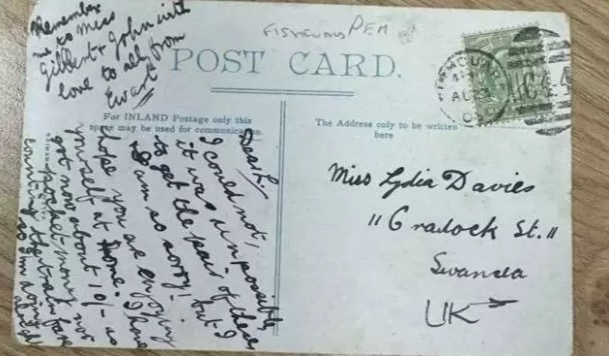 Remember
me to Miss
Gilbert & John with
love to all from
Ewart
FISHGUARD PEM
POST CARD.
For INLAND Postage only this
space may be used for communication.
The Address only to be written
here
FISHGUARD
AU 23
C44
Dear L.
I could not,
it was impossible,
to get the pair of these
I am so sorry, but I
hope you are enjoying
yourself at home. I have
got now about 10/- as
pocket money nor
counting the train fare
so I'm doing
Miss Lydia Davies
11 Cradock St.
Swansea
UK